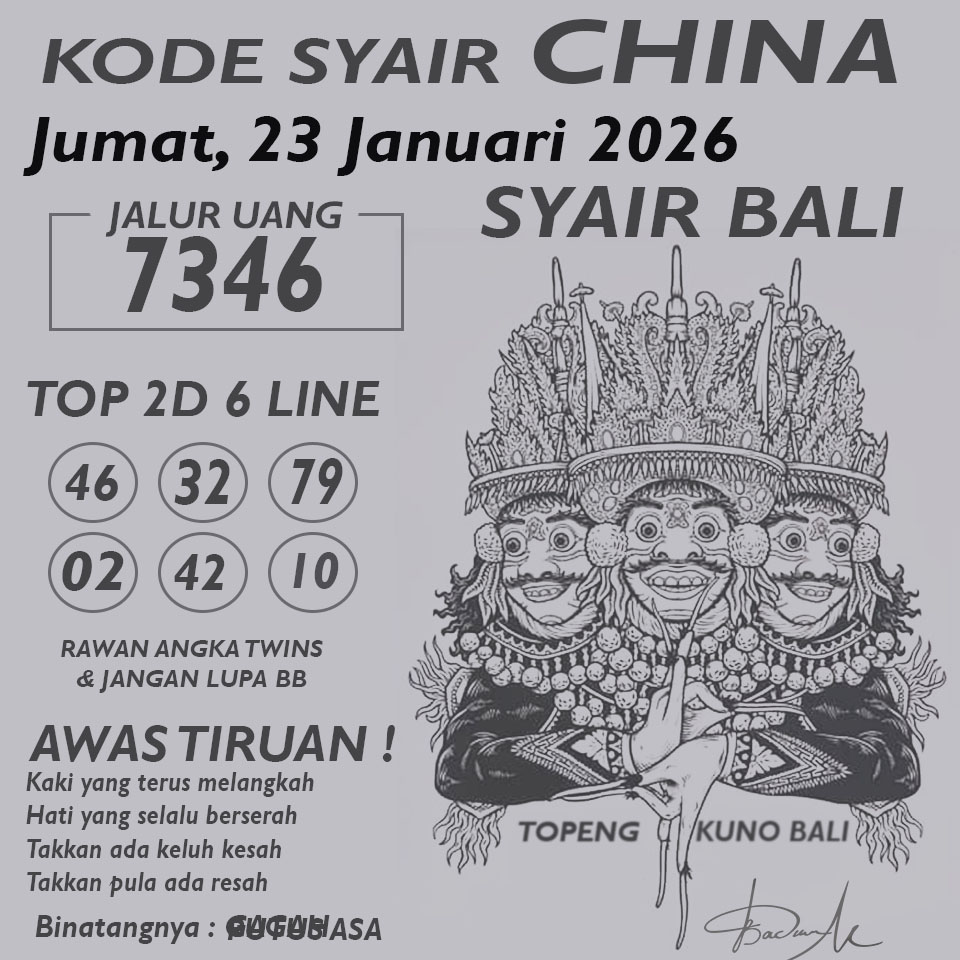 KODE SYAIR CHINA
Jumat, 23 Januari 2026
SYAIR BALI
JALUR UANG
7346
TOP 2D 6 LINE
46 32 79
02 42 10
RAWAN ANGKA TWINS
& JANGAN LUPA BB
AWAS TIRUAN !
Kaki yang terus melangkah
Hati yang selalu berserah
Takkan ada keluh kesah
Takkan pula ada resah
TOPENG KUNO BALI
Binatangnya :